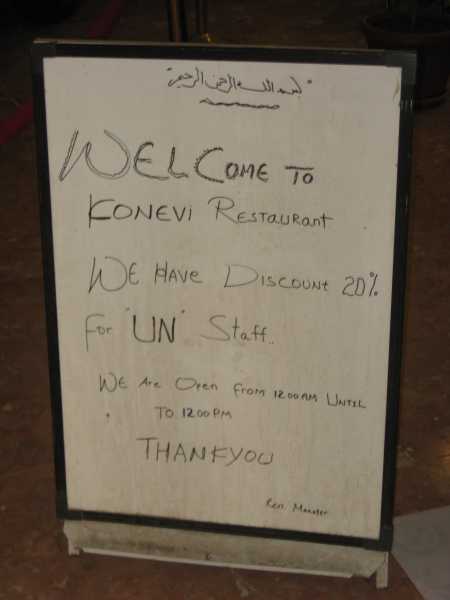 بسم الله الرحمن الرحيم
WELCOME TO
KONEVI RESTAURANT
WE HAVE DISCOUNT 20%
For "UN" Staff..
WE Are Open From 12.00AM UNTIL
TO 12.00PM
THANKYOU